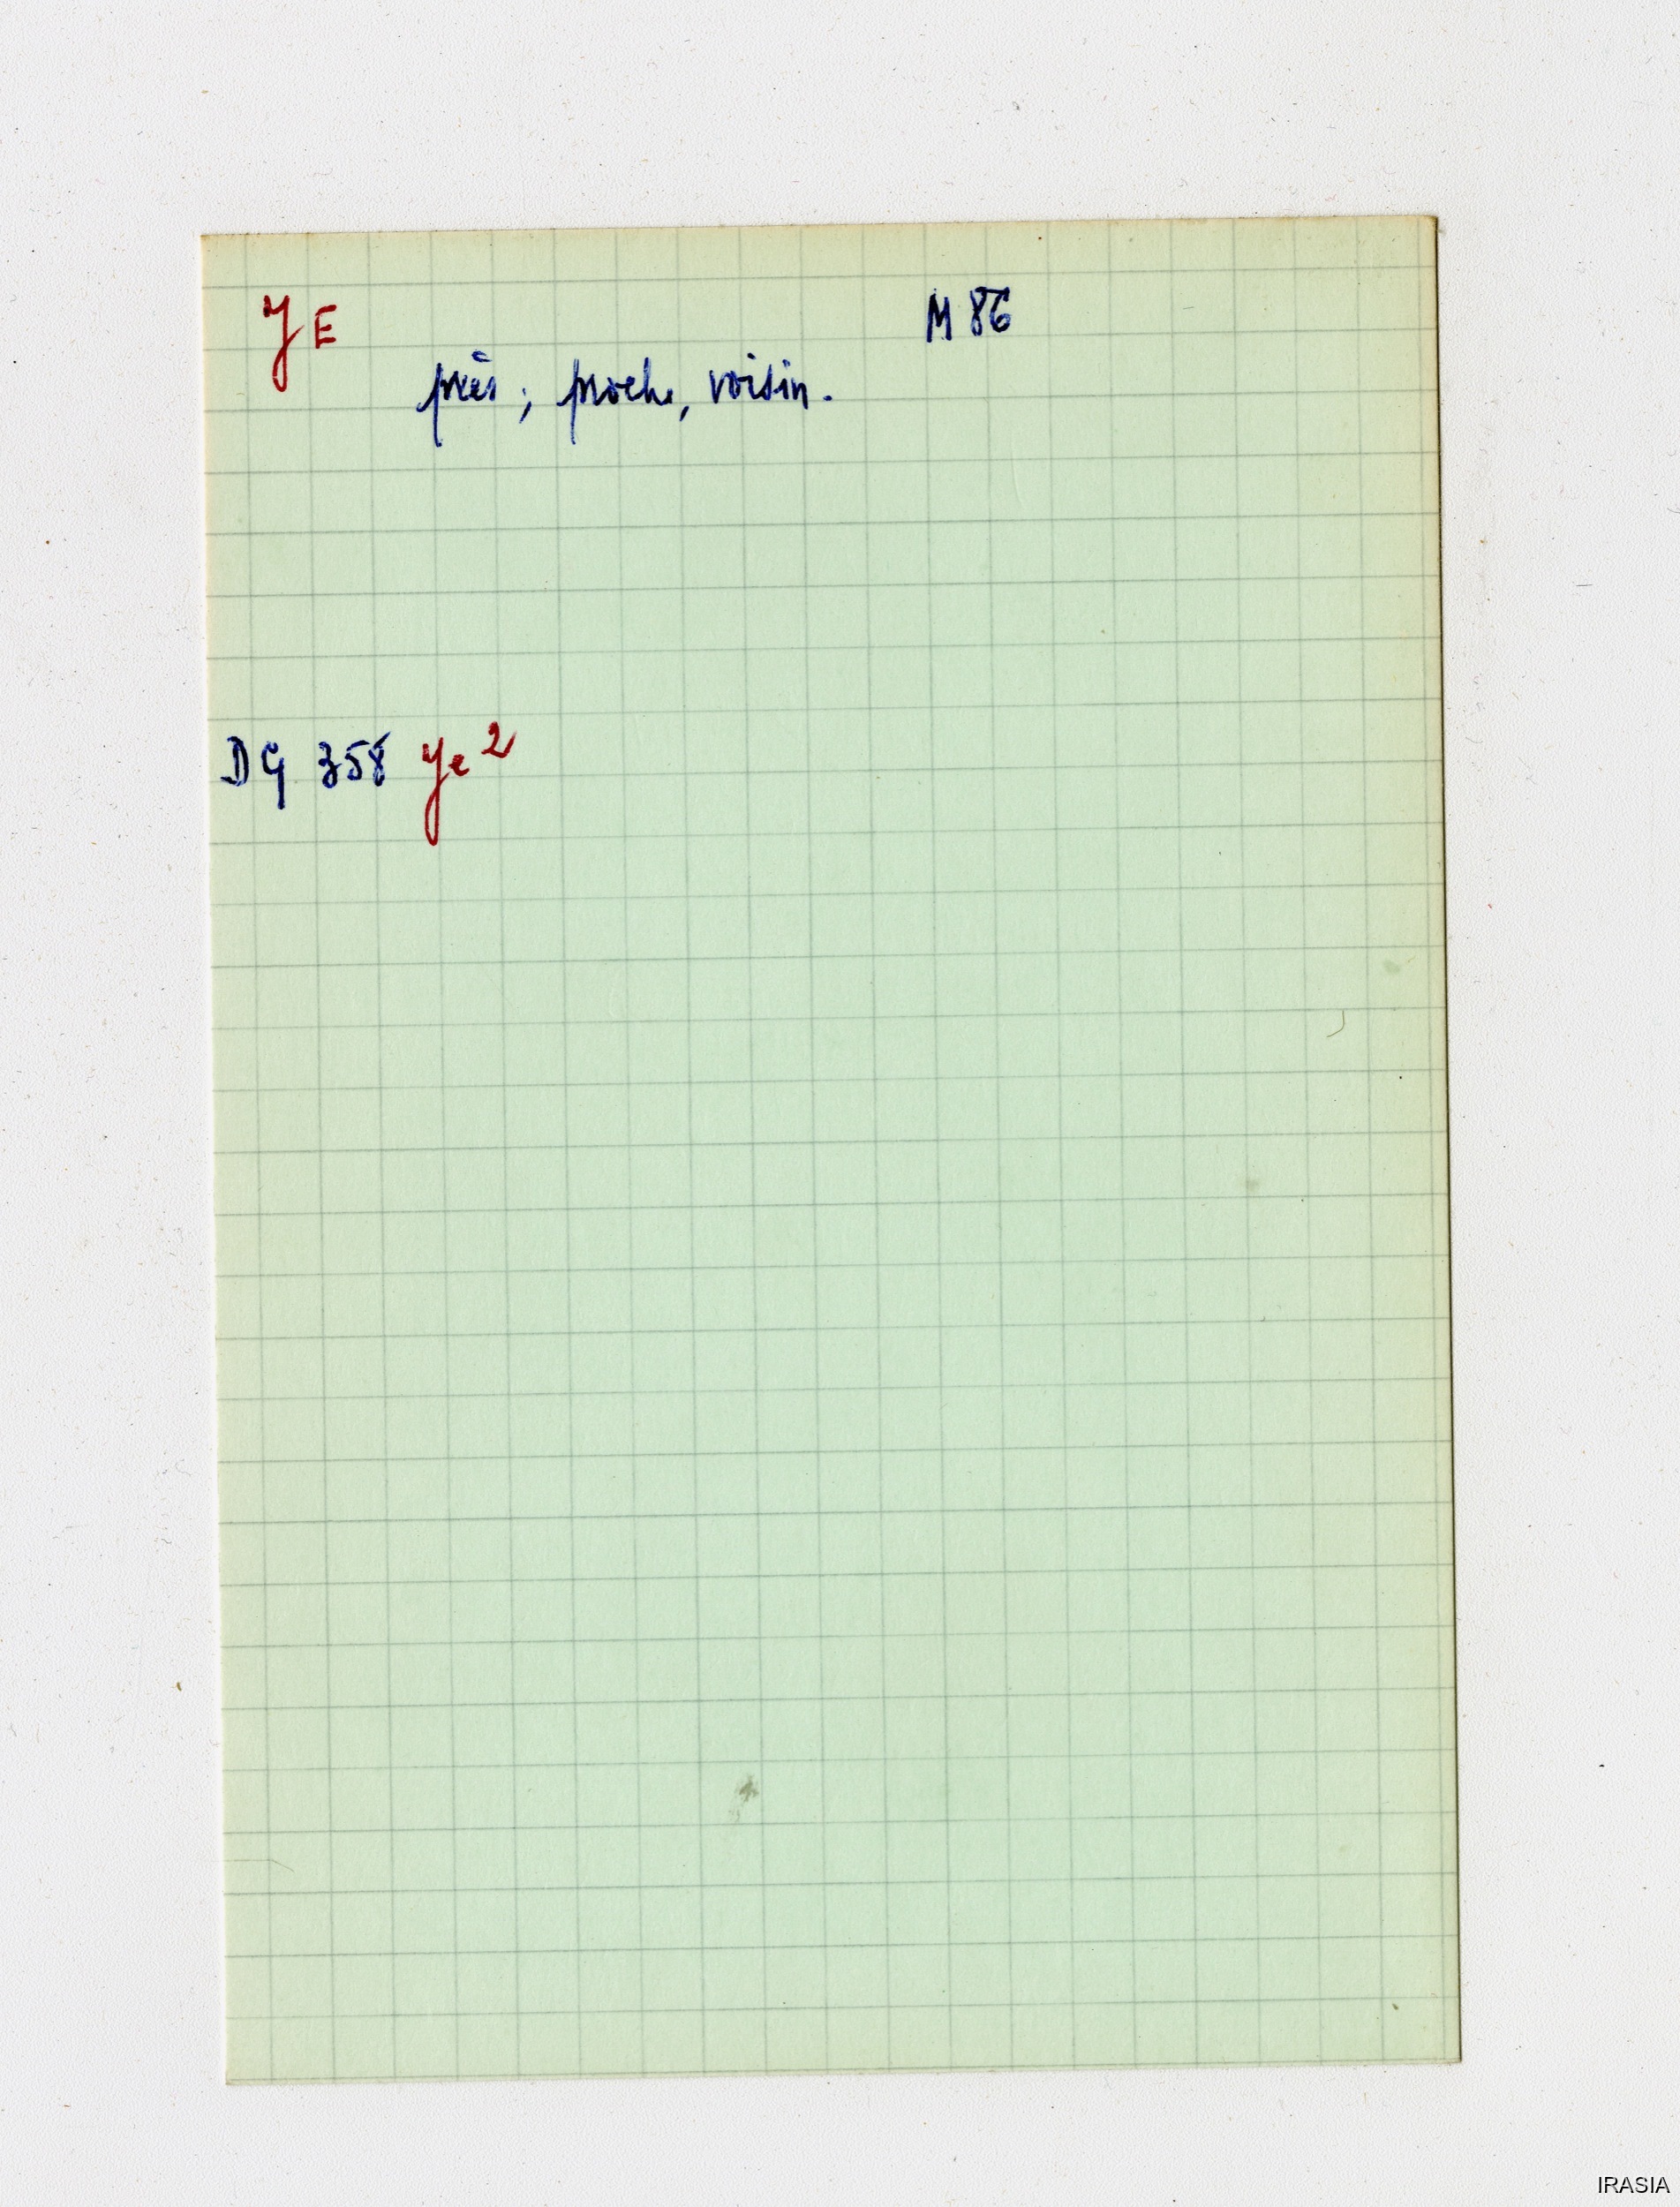 YE M 86
près; proche, voisin.
DG 358 ye²
IRASIA